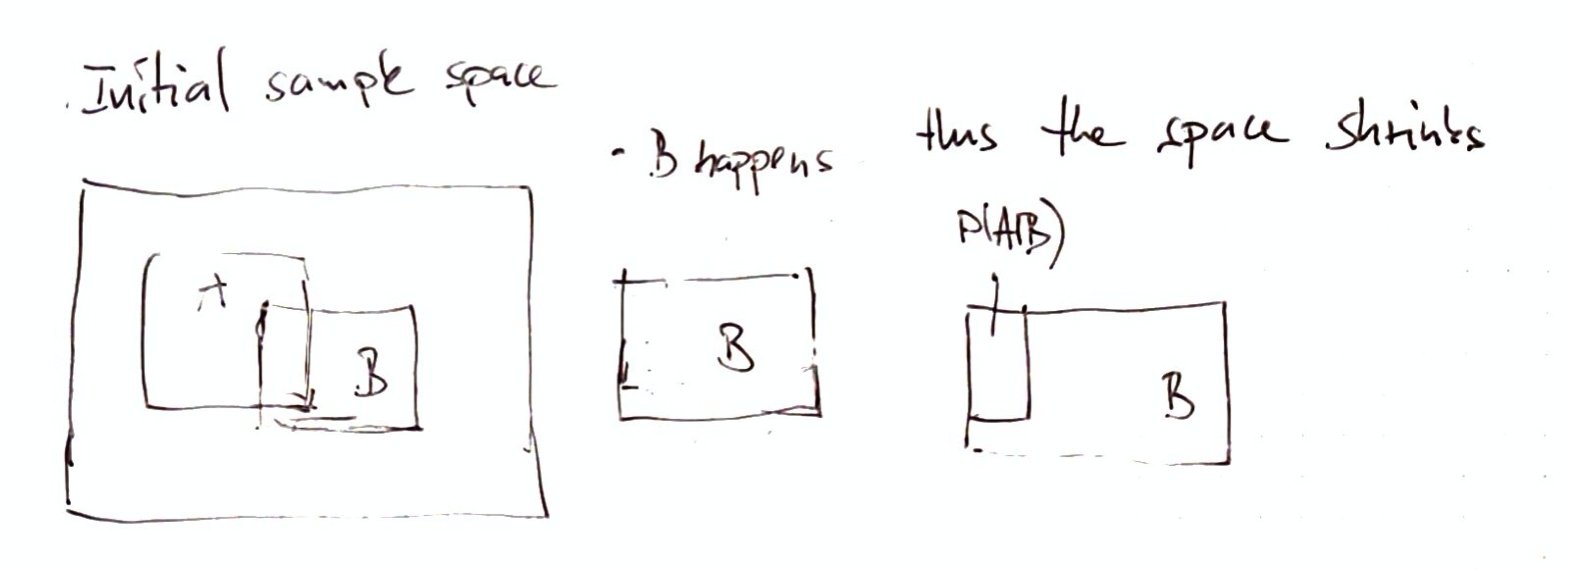 Initial sample space
- B happens
thus the space shrinks
P(A|B)
A
B
B
B